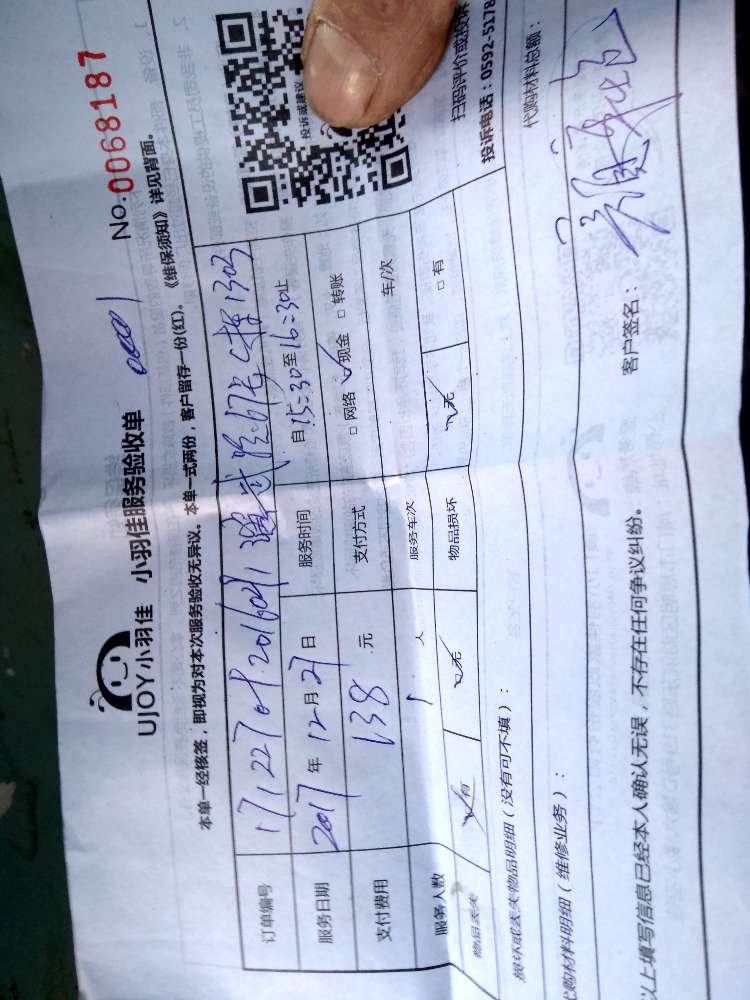 UJOY小羽佳 小羽佳服务验收单
No.0068187
本单一经核签，即视为对本次服务验收无异议。本单一式两份，客户留存一份(红)。《维保须知》详见背面。
订单编号
服务日期 2017年12月27日 服务时间 自15:30至16:30止
支付费用 138元 支付方式 □ 网络 ✓现金 □ 转账
服务人数 1 人 服务车次 车/次
物品丢失 有 ✓无 物品损坏 ✓无 □ 有
投诉或建议
扫码评价或投诉
投诉电话：0592-5178
损坏或丢失物品明细（没有可不填）：
代购材料明细（维修业务）： 代购材料总额：
以上填写信息已经本人确认无误，不存在任何争议纠纷。 客户签名：